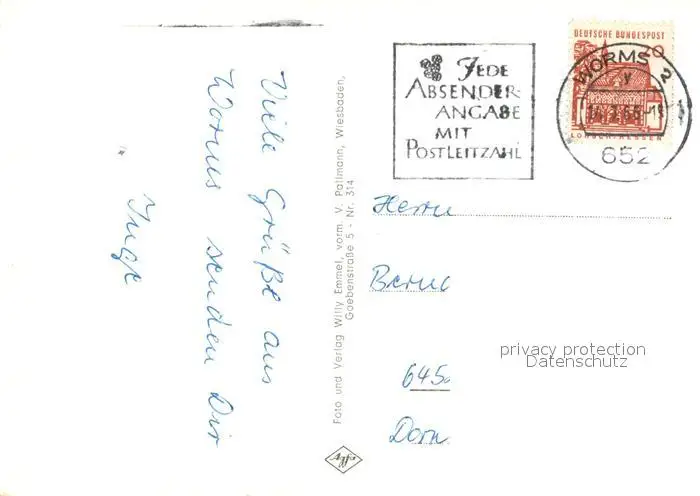 Viele Grüße aus
Worms senden Dir
Inge
Foto und Verlag Willy Emmel, vorm. V. Patlmann, Wiesbaden,
Goebenstraße 5 - Nr. 314
Agfa
JEDE
ABSENDER-
ANGABE
MIT
POSTLEITZAHL
DEUTSCHE BUNDESPOST
20
WORMS 2
y
652
Herrn
Bernd
645.
Dorn
privacy protection
Datenschutz